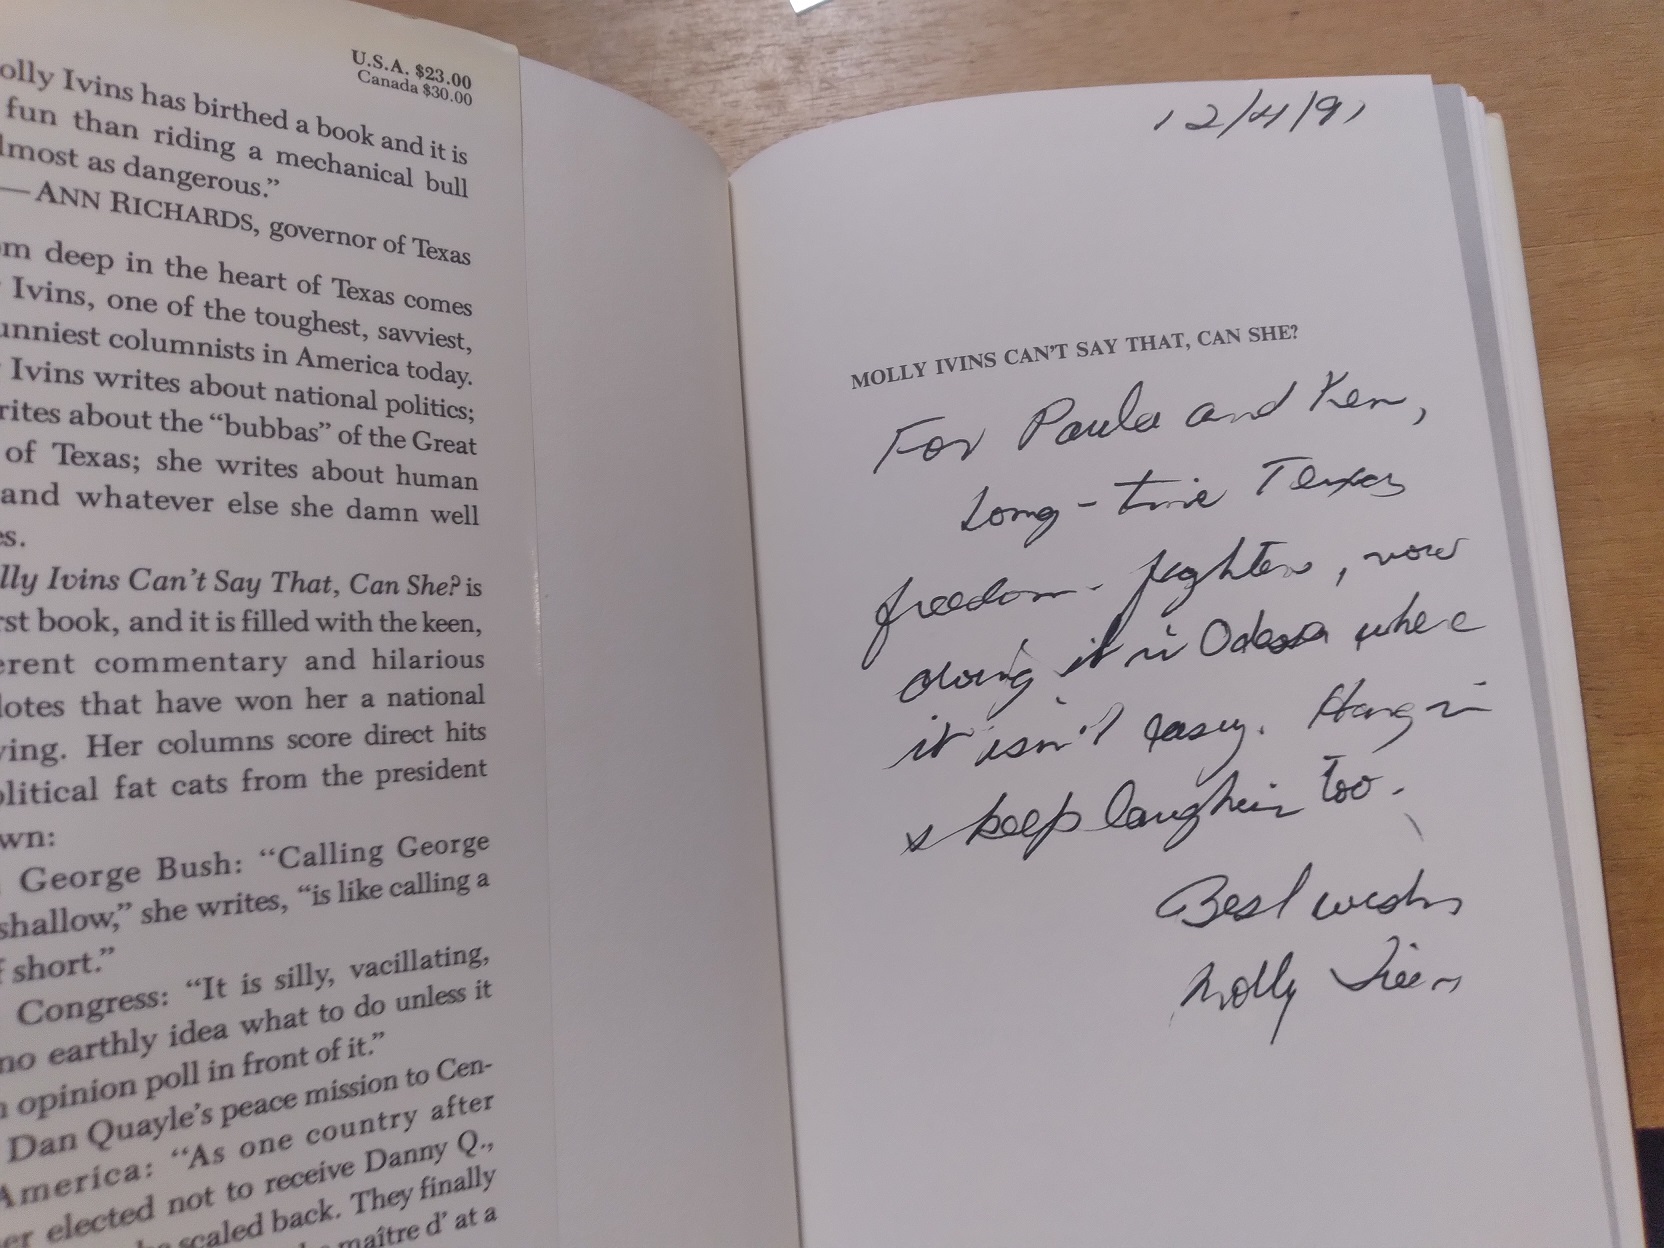 U.S.A. $23.00
Canada $30.00
olly Ivins has birthed a book and it is
fun than riding a mechanical bull
lmost as dangerous.”
—ANN RICHARDS, governor of Texas
om deep in the heart of Texas comes
Ivins, one of the toughest, savviest,
unniest columnists in America today.
Ivins writes about national politics;
rites about the “bubbas” of the Great
of Texas; she writes about human
and whatever else she damn well
es.
lly Ivins Can’t Say That, Can She? is
rst book, and it is filled with the keen,
erent commentary and hilarious
dotes that have won her a national
ving. Her columns score direct hits
olitical fat cats from the president
wn:
George Bush: “Calling George
shallow,” she writes, “is like calling a
f short.”
Congress: “It is silly, vacillating,
no earthly idea what to do unless it
n opinion poll in front of it.”
Dan Quayle’s peace mission to Cen-
America: “As one country after
er elected not to receive Danny Q.,
scaled back. They finally
maître d’ at a
12/4/91
MOLLY IVINS CAN’T SAY THAT, CAN SHE?
For Paula and Ken,
Long-time Texas
freedom-fighters, now
doing it in Odessa where
it isn't easy. Hang in
& keep laughin too.
Best wishes
Molly Ivins